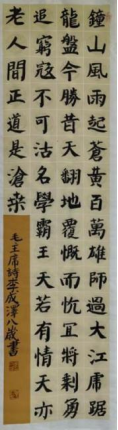 鍾山風雨起蒼黄百萬雄師過大江虎踞
龍盤今勝昔天翻地覆慨而忼宜將剩勇
追窮寇不可沽名學霸王天若有情天亦
老人間正道是滄桒
毛主席詩李成澤八歲書